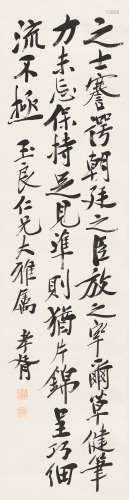 之士謇諤朝廷之臣放之牢爾草健筆
力未忘保持足見準則猶片錦呈巧細
流不極
玉良仁兄大雅屬 孝胥